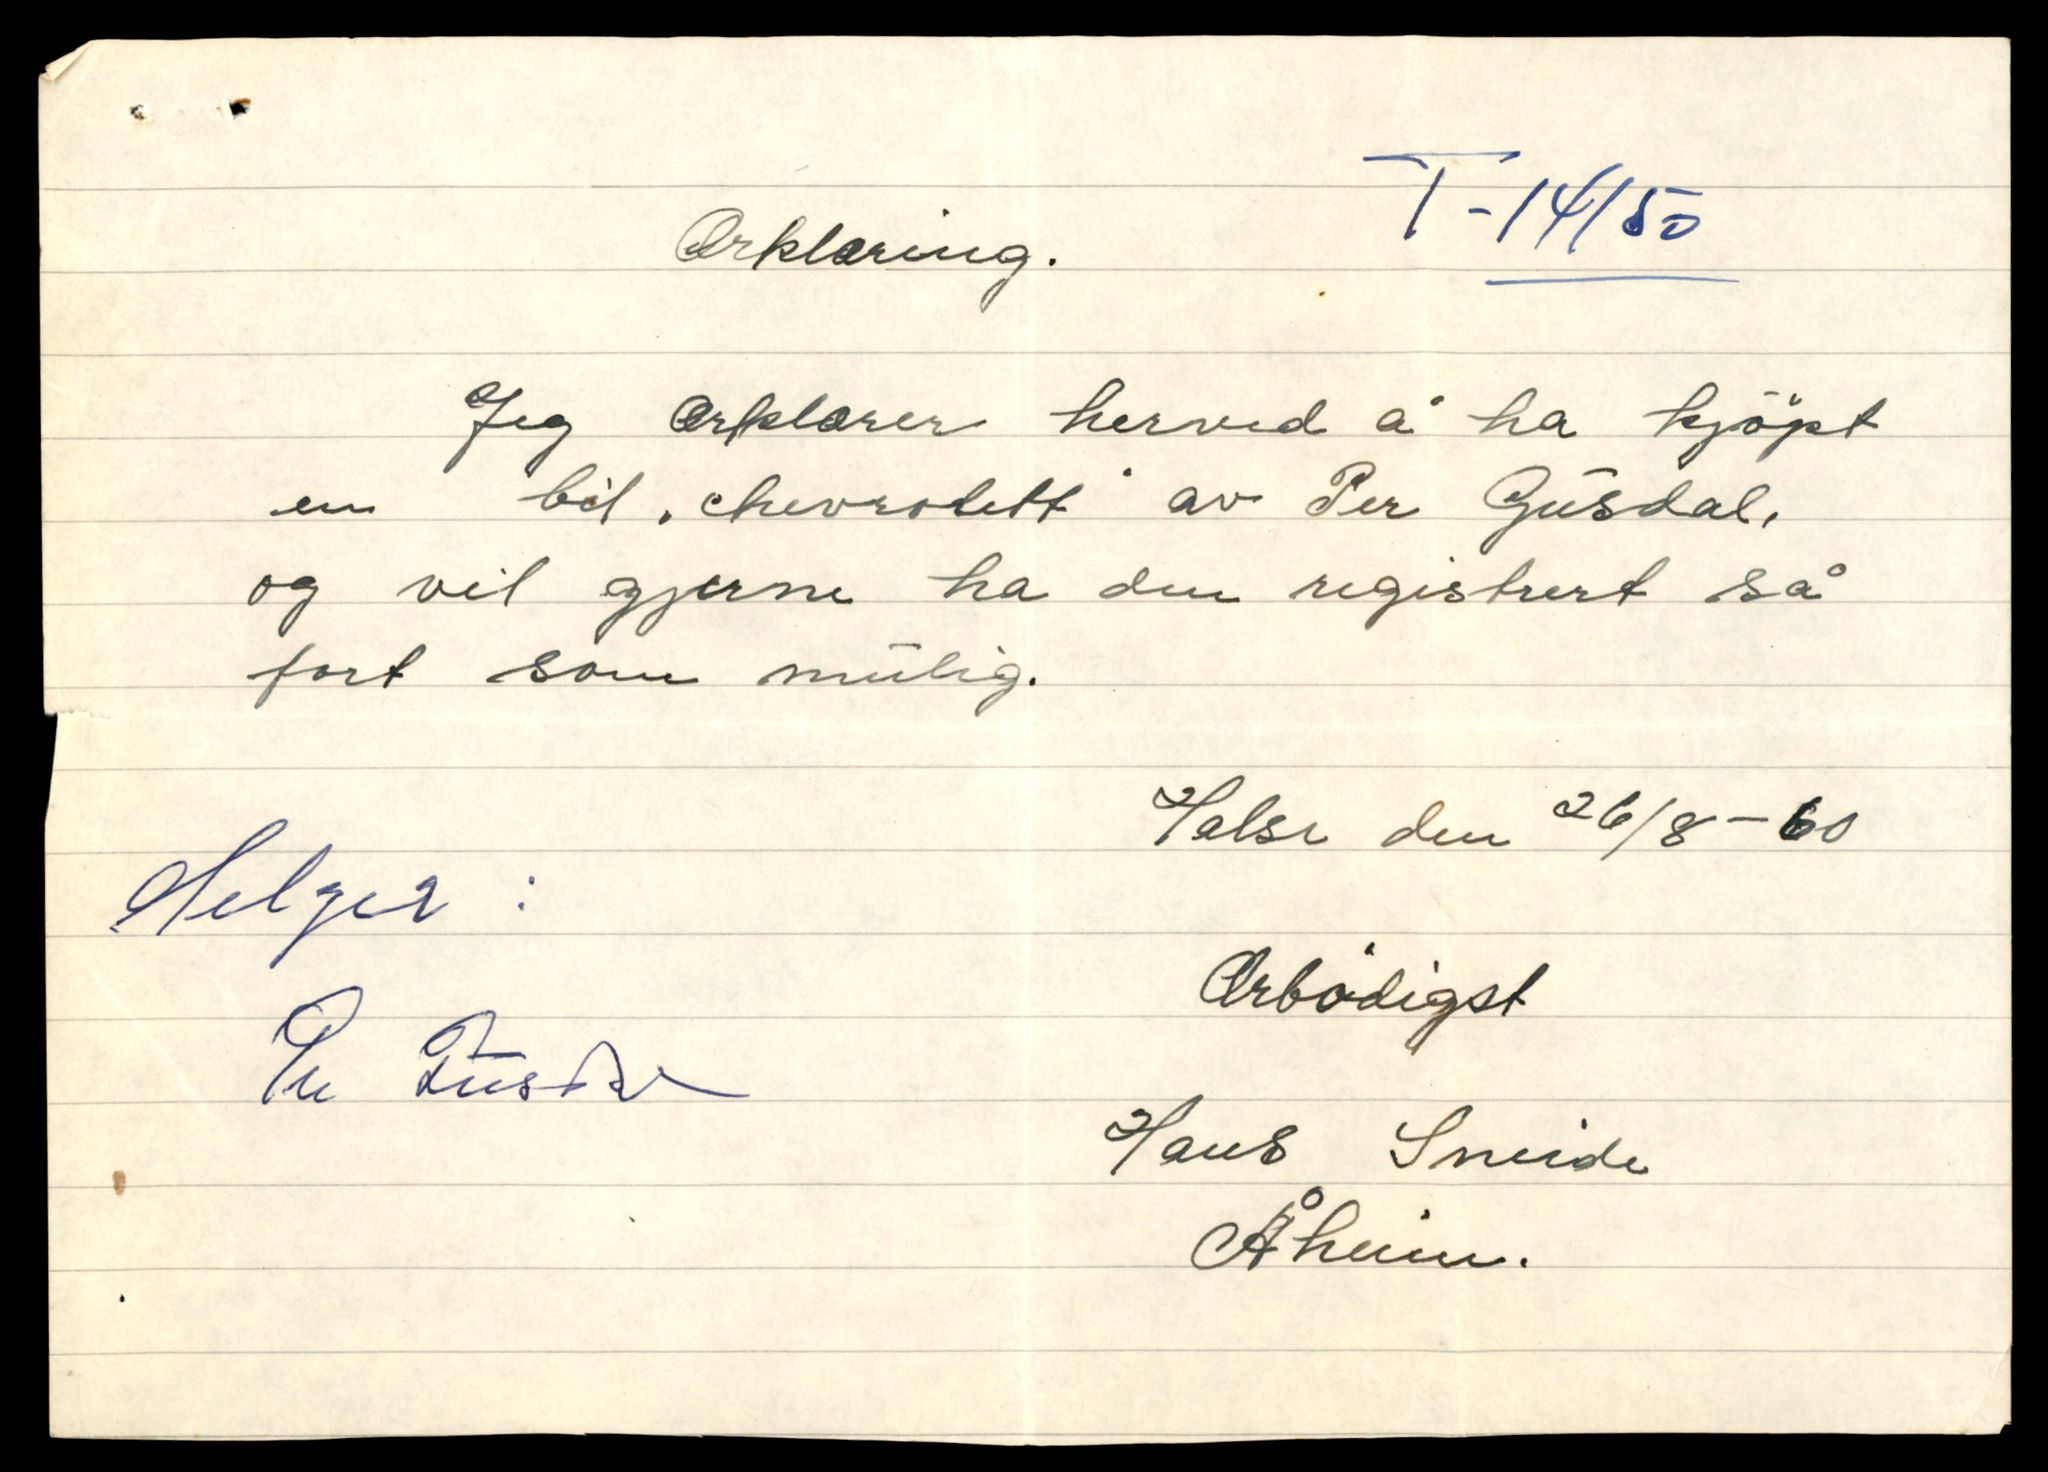 T-14150
Ærklæring.
Jeg ærklærer herved å ha kjöpt
en bil „chevrolett" av Per Gūsdal,
og vil gjerne ha den registrert så
fort som mūlig.
Halse den 26/8-60
Selger:
Ærbödigst
Per Gūsdal
Hans Sneide
Åheim.